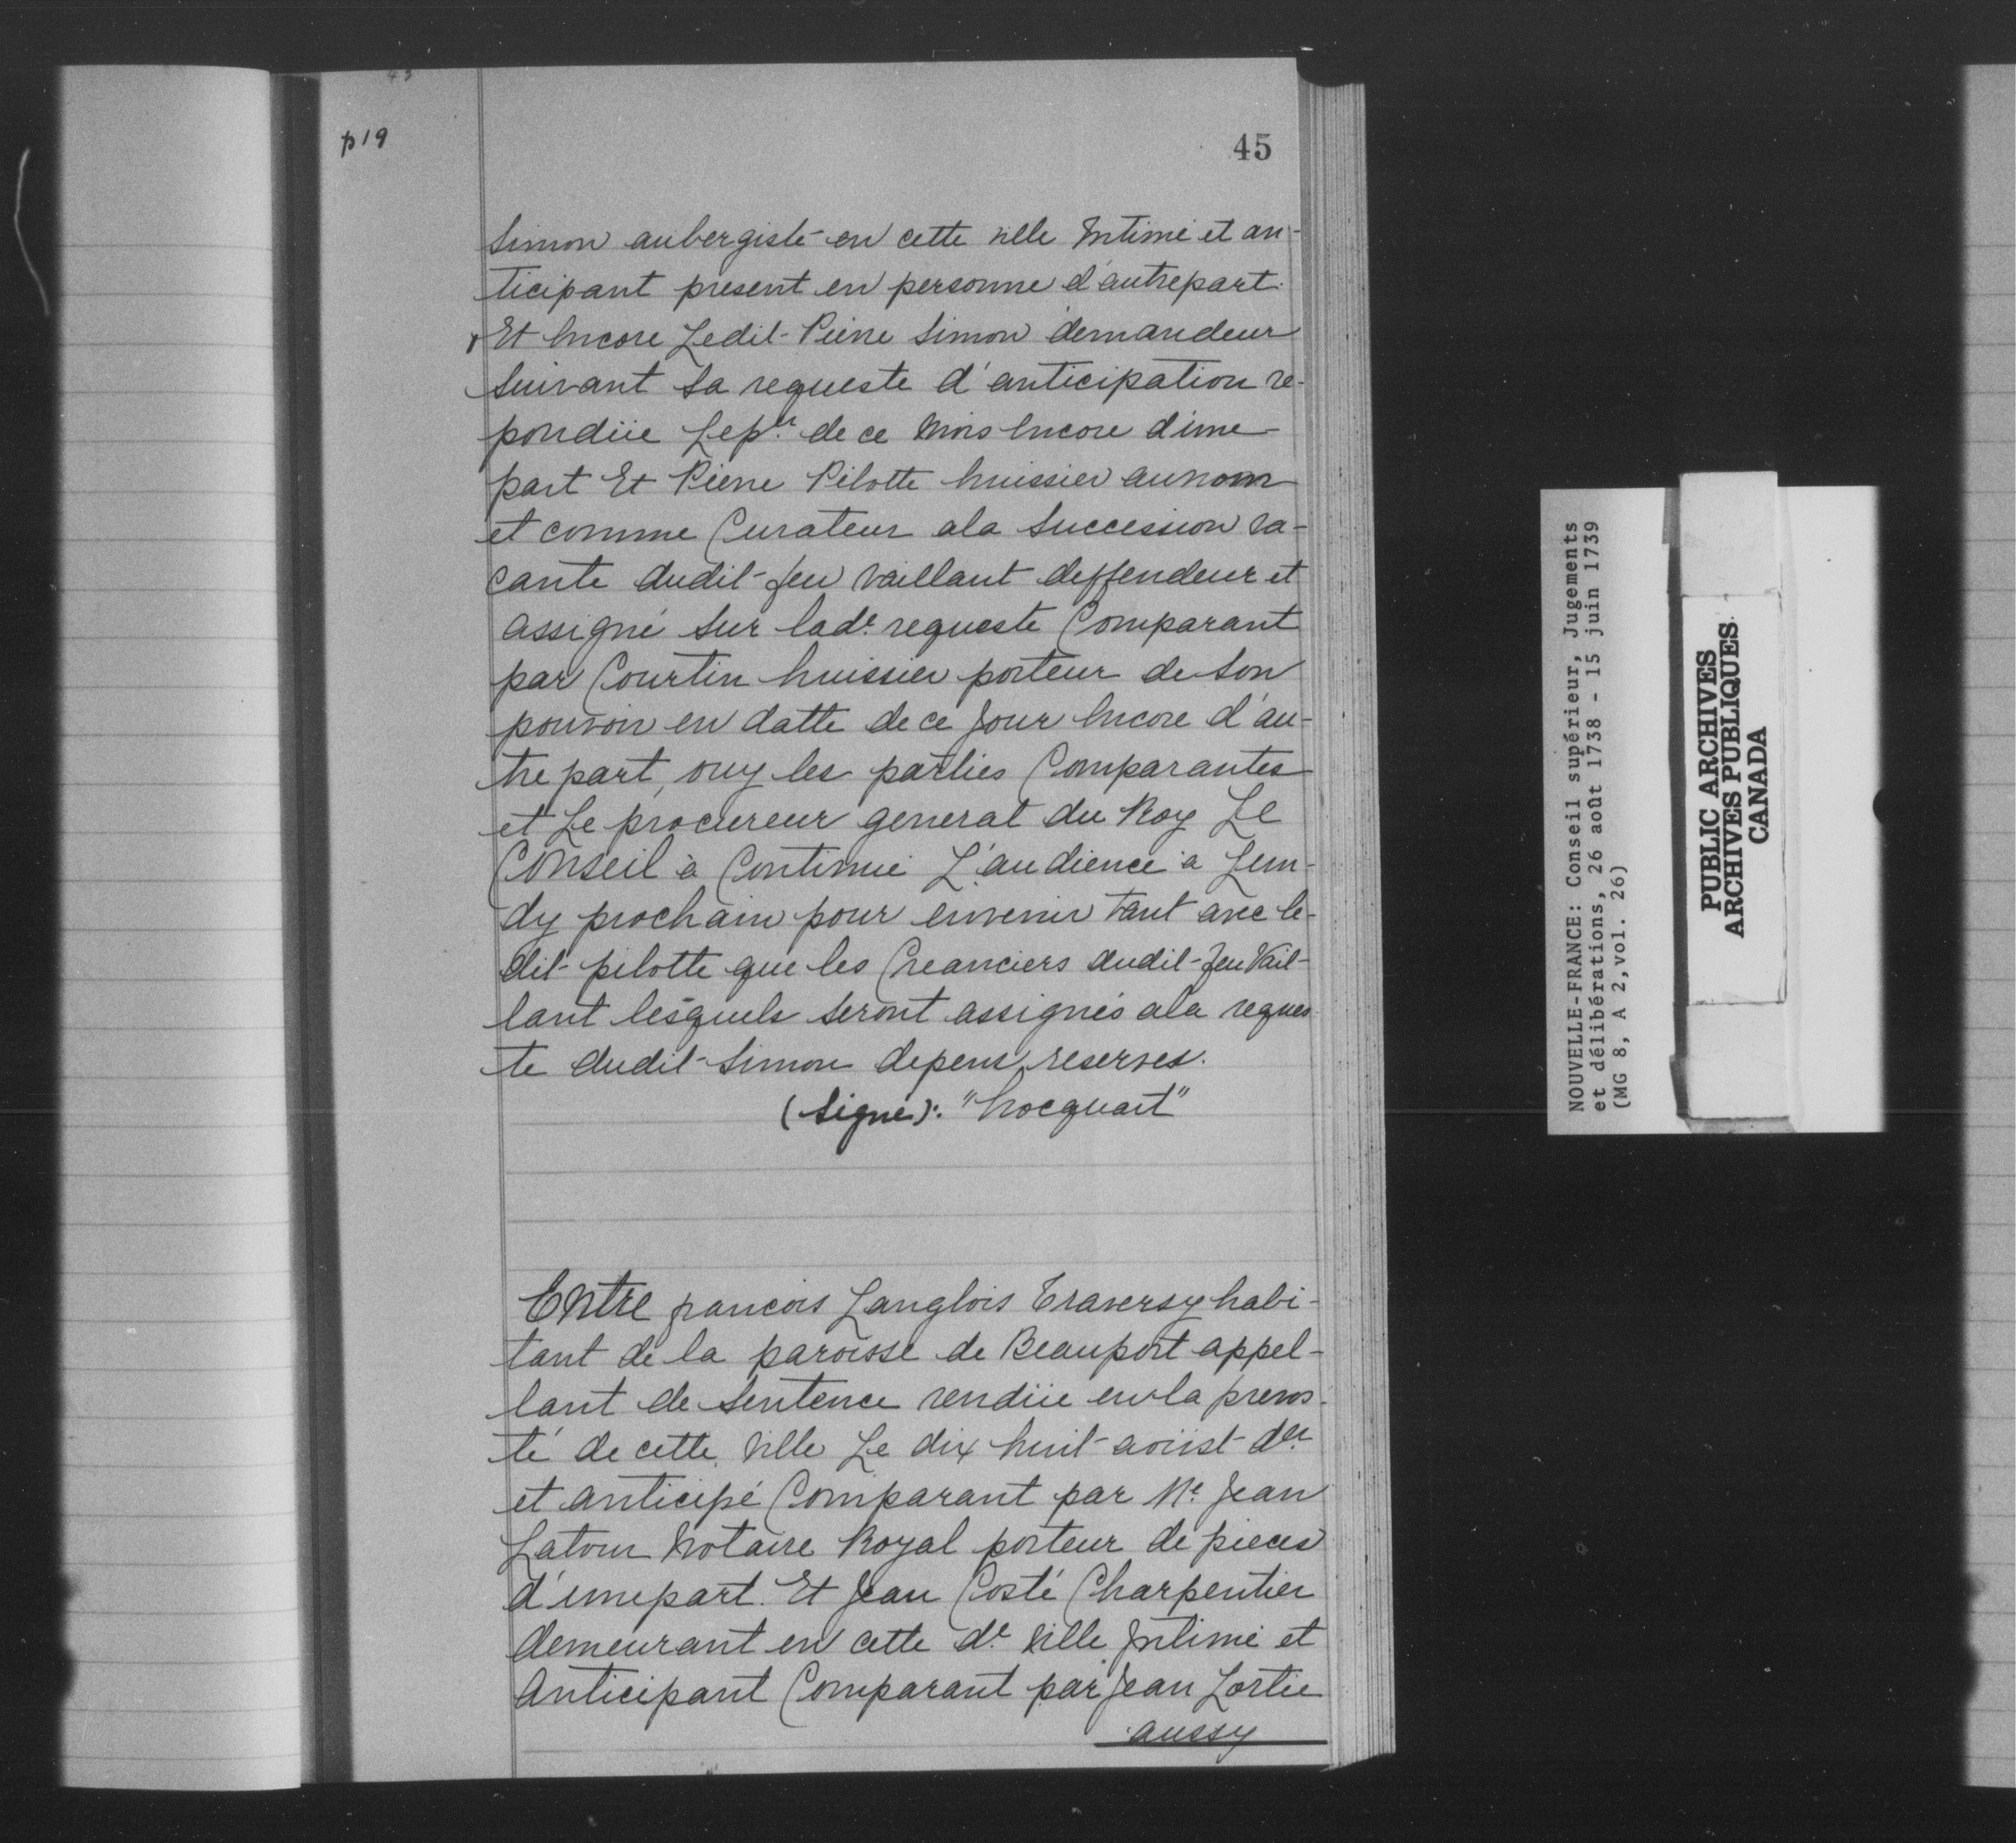 p19
45
Simon aubergiste en cette ville Intimé et an-
ticipant present en personne d'autrepart.
Et Encore Ledit Pierre Simon demandeur
suivant sa requeste d'anticipation re-
pondüe Le pr. de ce mois Encore d'une
part Et Pierre Pilotte huissier aunom
et comme Curateur ala Succession va-
cante dudit feu Vaillant deffendeur et
assigné sur lade. requeste Comparant
par Courtin huissier porteur de son
pouvoir en datte de ce Jour Encore d'au-
tre part, ouy les parties Comparantes
et Le procureur general du Roy Le
Conseil à Continué L'audience a Lun-
dy prochain pour envenir tant avec le-
dit pilotte que les Creanciers dudit feu Vail-
lant lesquels seront assignés ala reques-
te dudit Simon depens reserves.
(Signé): "hocquart"
Entre francois Langlois Traversy habi-
tant de la paroisse de Beauport appel-
lant de Sentence rendüe en la prevos-
té de cette ville Le dix huit aoüst der.
et anticipé Comparant par Me. Jean
Latour Notaire Royal porteur de pieces
d'unepart. Et Jean Costé Charpentier
demeurant en cette de. ville Intimé et
Anticipant Comparant par Jean Lortie
aussy
NOUVELLE-FRANCE: Conseil supérieur, Jugements
et délibérations, 26 août 1738 - 15 juin 1739
(MG 8, A 2,vol. 26)
PUBLIC ARCHIVES
ARCHIVES PUBLIQUES
CANADA